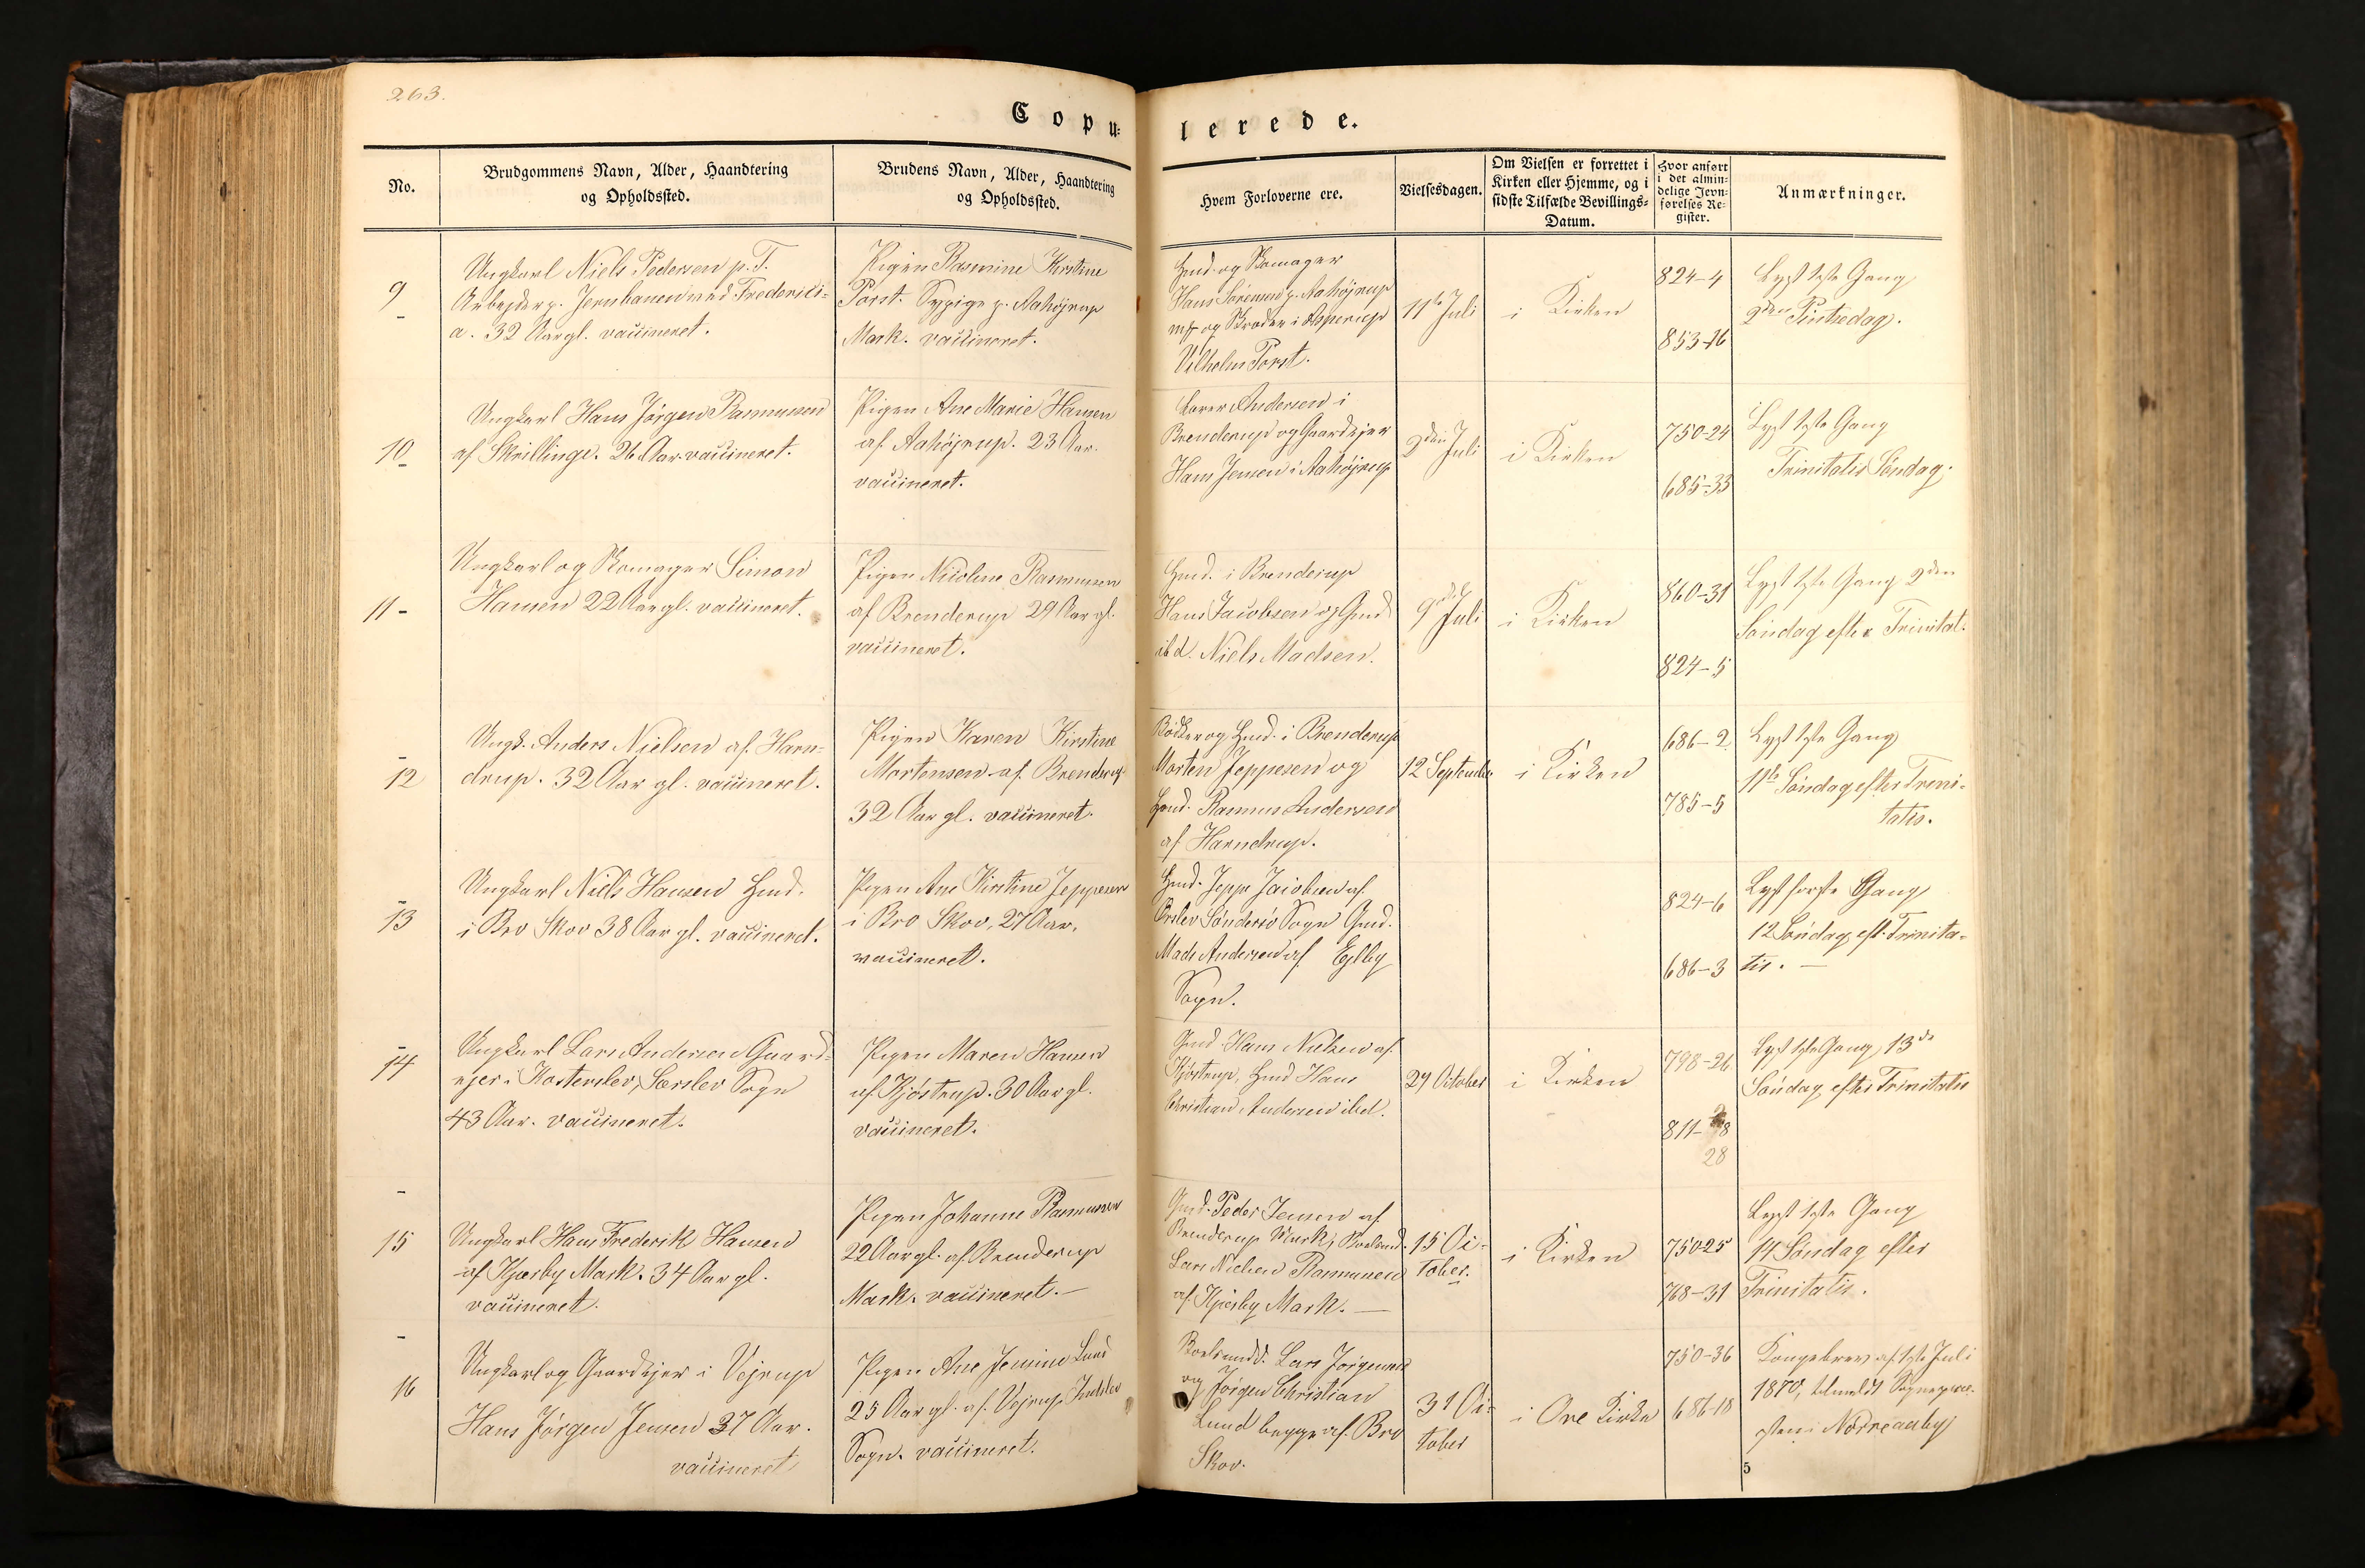 263.
Copu=
lerede.
No.
Brudgommens Navn, Alder, Haandtering
og Opholdssted.
Brudens Navn, Alder, Haandtering
og Opholdssted.
Hvem Forloverne ere.
Vielsesdagen.
Om Vielsen er forrettet i
Kirken eller Hjemme, og i
sidste Tilfælde Bevillings=
Datum.
Hvor anført
i det almin=
delige Jevn=
førelses Re=
gister.
Anmærkninger.
9
Ungkarl Niels Pedersen p. T.
Arbejder p. Jernbanen ved Frederici=
a. 32 Aar gl. vaccineret.
Pigen Rasmine Kirstine
Porst. Sypige p. Aahöjrup
Mark. vaccineret.
Hmd. og Skomager
Hans Sörensen p. Aahöjrup
og Broder i Asperup
Vilhelm Porst.
11te Juli
i Kirken
824-4
853-16
Lyst 1ste Gang
2den Pintsedag.
10
Ungkarl Hans Jörgen Rasmussen
af Skrillinge. 26 Aar. vaccineret.
Pigen Ane Marie Hansen
af Aahöjrup. 23 Aar.
vaccineret.
Lærer Andersen i
Brenderup og Gaardejer
Hans Jensen i Aahöjrup
2den Juli
i Kirken
750-24
685-33
Lyst 1ste Gang
Trinitatis Söndag.
11
Ungkarl og Skomager Simon
Hansen 22 Aar gl. vaccineret.
Pigen Nicoline Rasmussen
af Brenderup 29 Aar gl.
vaccineret.
Hmd. i Brenderup
Hans Jacobsen og Gmd
ibd. Niels Madsen.
9de Juli
i Kirken
860-31
824-5
Lyst 1ste Gang 2den
Söndag efter Trinitat.
12
Ungk. Anders Nielsen af Harn=
drup. 32 Aar gl. vaccineret.
Pigen Karen Kirstine
Mortensen af Brenderup
32 Aar gl. vaccineret.
Bödker og Hmd. i Brenderup
Morten Jeppesen og
Hmd. Rasmus Andersen
af Harndrup.
12 September
i Kirken
686-2
785-5
Lyst 1ste Gang
11te Söndag efter Trini=
tatis.
13
Ungkarl Niels Hansen Hmd.
i Bro Skov 38 Aar gl. vaccineret.
Pigen Ane Kirstine Jeppesen
i Bro Skov, 27 Aar.
vaccineret.
Hmd. Jeppe Jacobsen af
Örslev Sönderső Sogn Gmd.
Mads Andersen af Ejlby
Sogn.
824-6
686-3
Lyst förste Gang
12 Söndag eft. Trinita=
tis.
14
Ungkarl Lars Andersen Gaard=
ejer i Kosterslev, Særslev Sogn
43 Aar. vaccineret.
Pigen Maren Hansen
af Kjöstrup. 30 Aar gl.
vaccineret.
Gmd. Hans Nielsen af
Kjöstrup, Hmd Hans
Christian Andersen ibd.
29 October
i Kirken
798-26
811-
28
Lyst 1ste Gang 13de
Söndag efter Trinitatis
15
Ungkarl Hans Frederik Hansen
af Kjærby Mark. 34 Aar gl.
vaccineret.
Pigen Johanne Rasmussen
22 Aar gl. af Brenderup
Mark. vaccineret.
Gmd. Peder Jensen af
Brenderup Mark, Boelsmd.
Lars Nielsen Rasmussen
af Kjærby Mark.
15 Oc=
tober.
i Kirken
750-25
768-31
Lyst 1ste Gang
14 Söndag efter
Trinitatis.
16
Ungkarl og Gaardejer i Vejrup
Hans Jörgen Jensen 37 Aar.
vaccineret
Pigen Ane Jensine Lund
25 Aar gl. af Vejrup, Indslev
Sogn. vaccineret.
Boelsmdd. Lars Jörgensen
og Jörgen Christian
Lund begge af Bro
Skov.
31 Oc=
tober
i Ore Kirke
750-36
686-18
Kongebrev af 1ste Juli
1870, tilmeldt Sognepræ=
sten i Nörreaaby
5